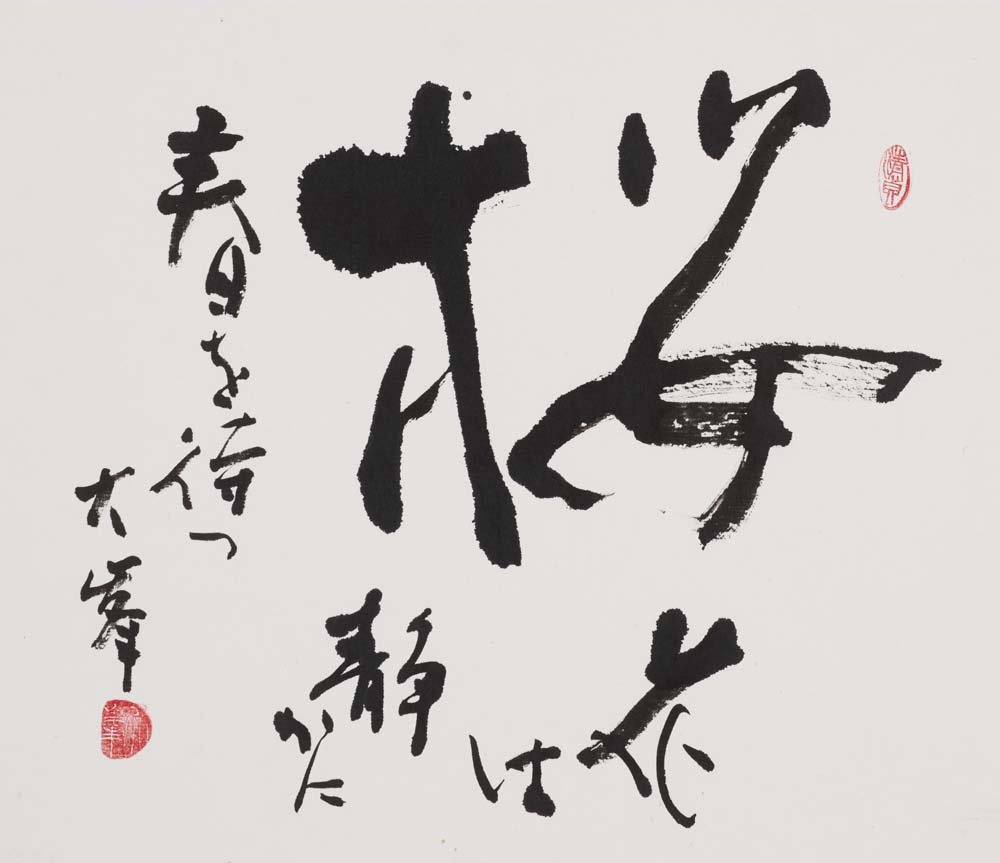 梅
花
は
静
かに
春を待つ
大峯